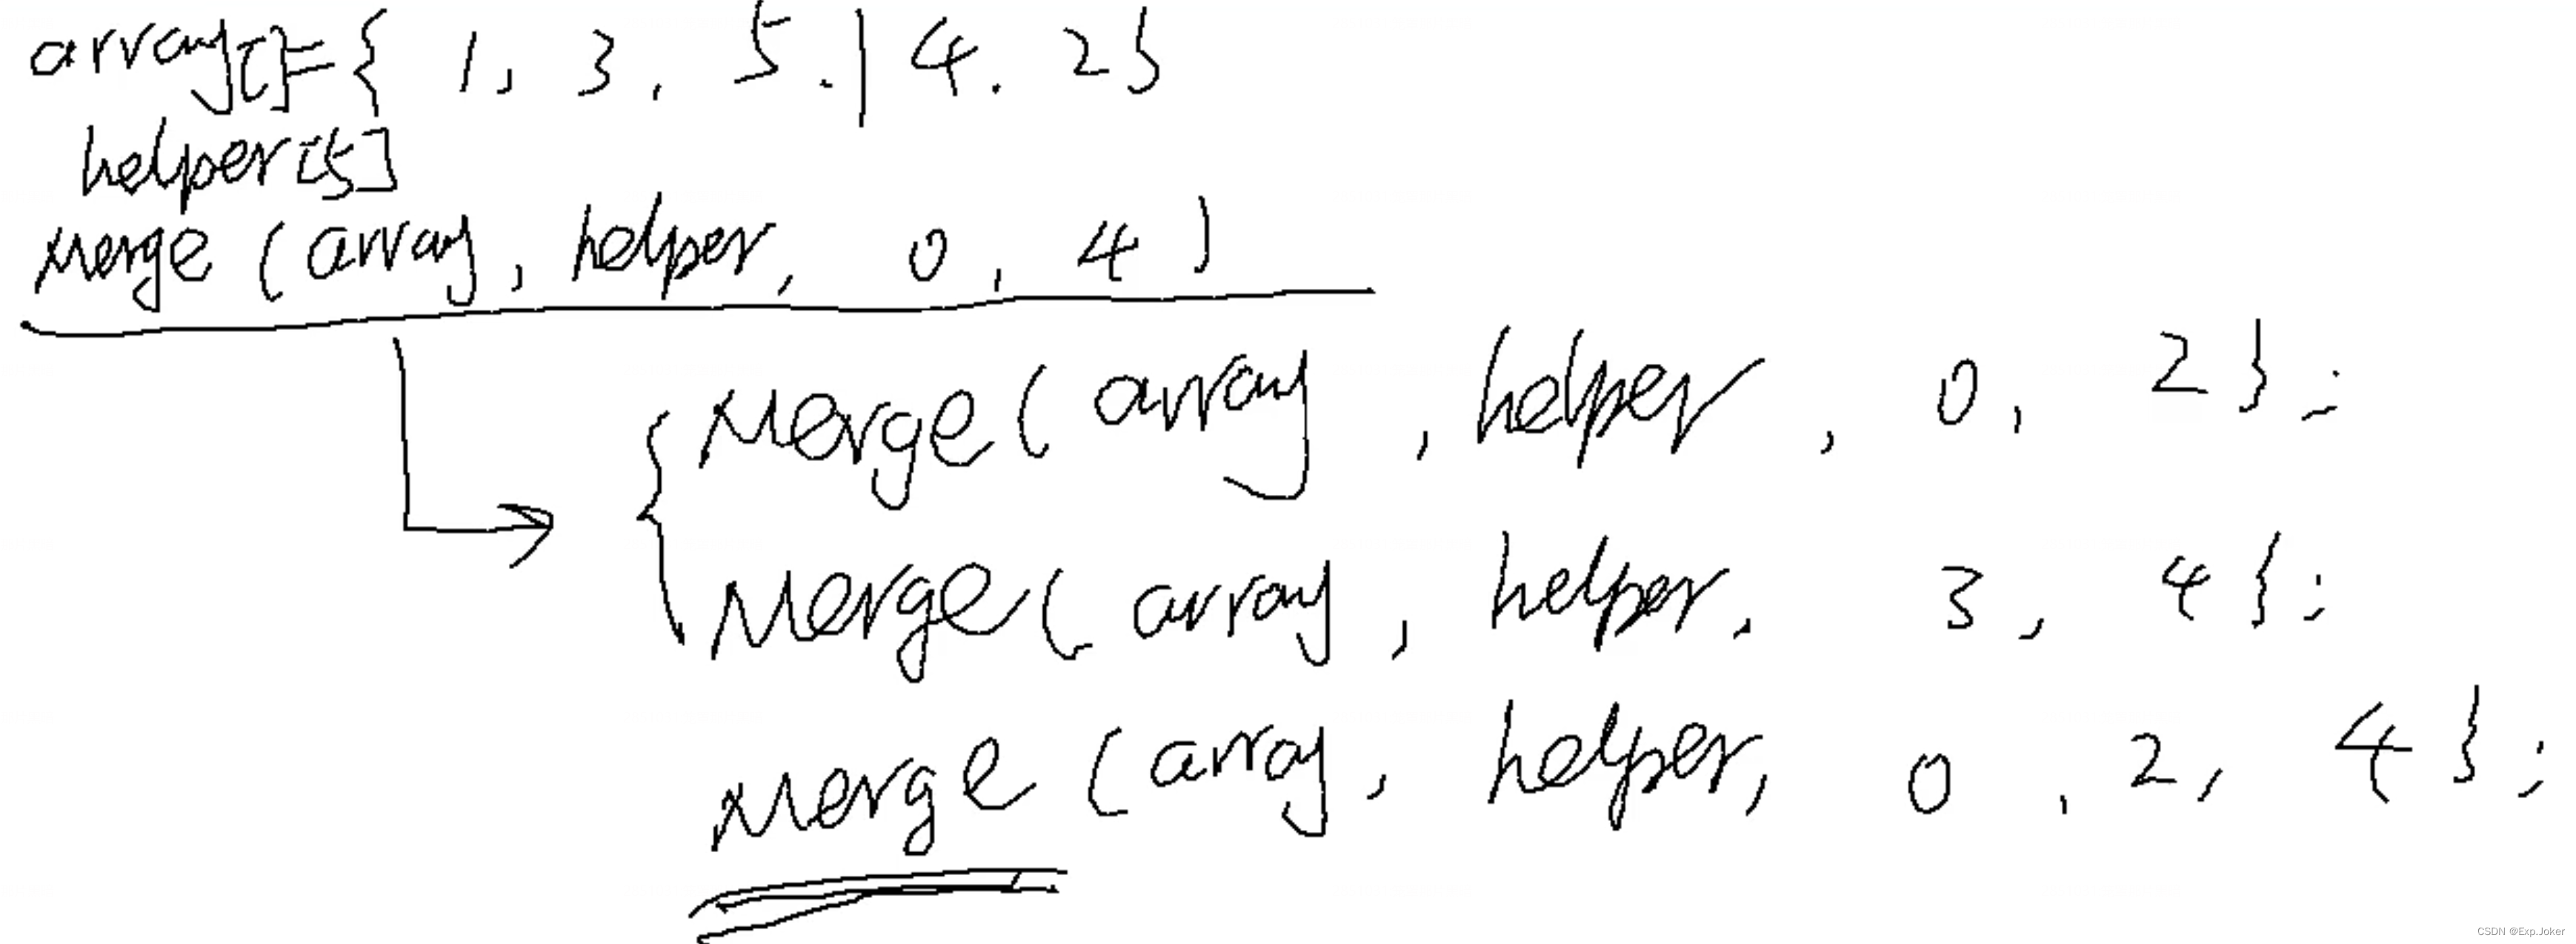 array[]={ 1, 3, 5.| 4. 2}
helper[5]
Merge (array, helper, 0, 4)
Merge( array, helper, 0, 2};
Merge( array, helper, 3, 4};
Merge (array, helper, 0, 2, 4};
CSDN @Exp.Joker